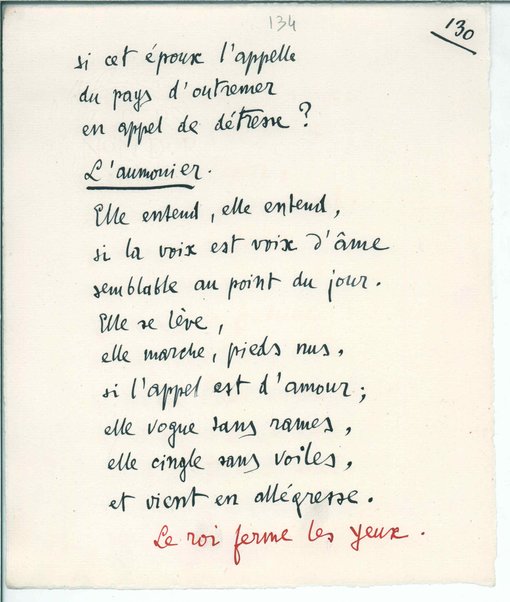 134
130
si cet époux l'appelle
du pays d'outremer
en appel de détresse ?
L'aumonier.
Elle entend, elle entend,
si la voix est voix d'âme
semblable au point du jour.
Elle se lève,
elle marche, pieds nus,
si l'appel est d'amour ;
elle vogue sans rames,
elle cingle sans voiles,
et vient en allégresse.
Le roi ferme les yeux.